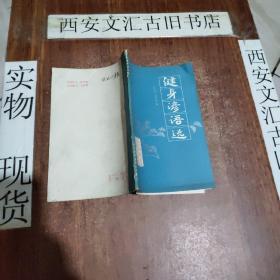 西安文汇古旧书店
西安文汇古旧书店
实物
现货
健身谚语选